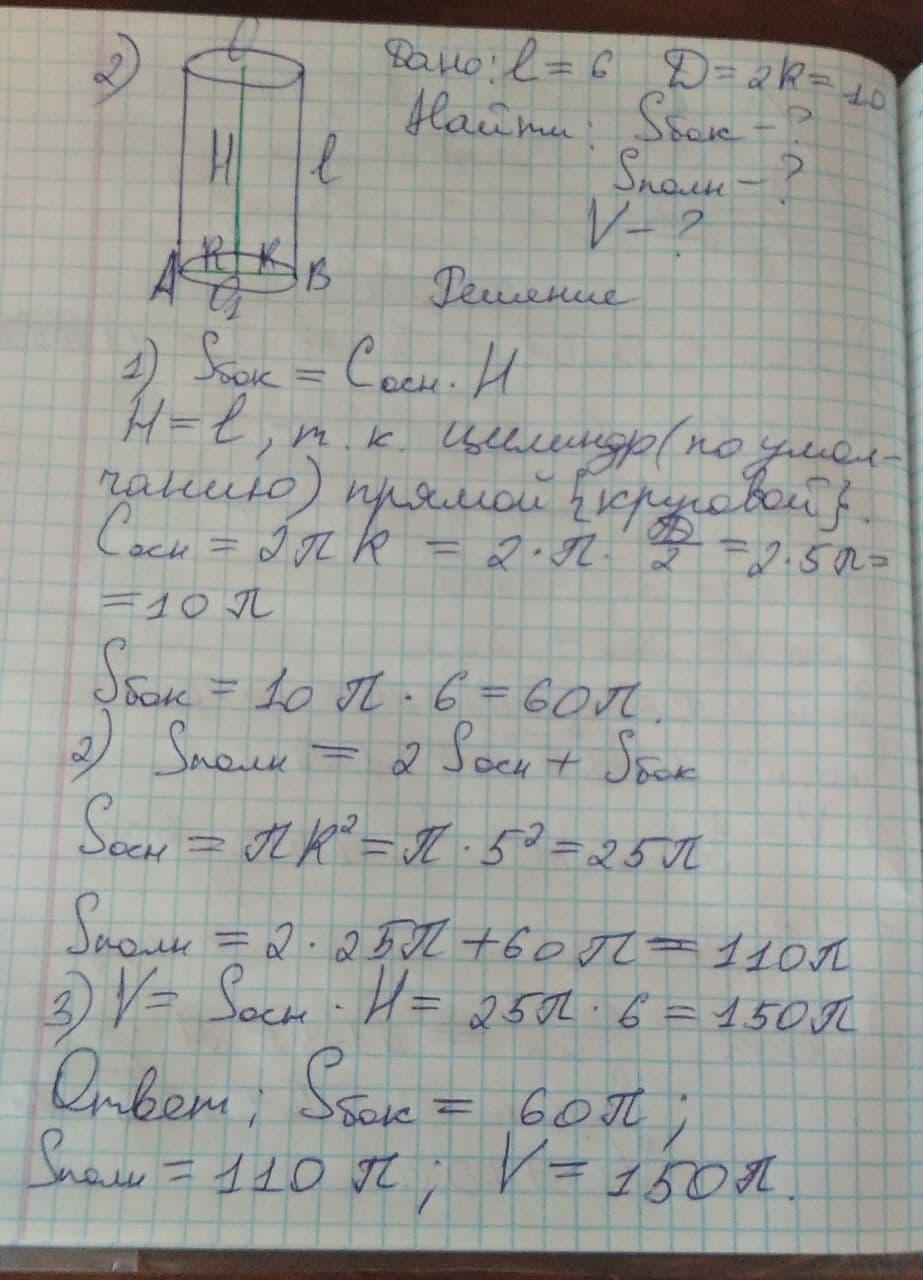 2)
O
Дано: l = 6 D = 2R = 10
Найти: Sбок - ?
H l
Sполн - ?
V - ?
R R
A O₁ B
Решение
1) Sбок = Cосн · H
H = l, т. к. цилиндр (по умол-
чанию) прямой {круговой}.
Cосн = 2πR = 2 · π · D/2 = 2 · 5π =
= 10π
Sбок = 10π · 6 = 60π.
2) Sполн = 2Sосн + Sбок
Sосн = πR² = π · 5² = 25π
Sполн = 2 · 25π + 60π = 110π
3) V = Sосн · H = 25π · 6 = 150π
Ответ; Sбок = 60π;
Sполн = 110π; V = 150π.